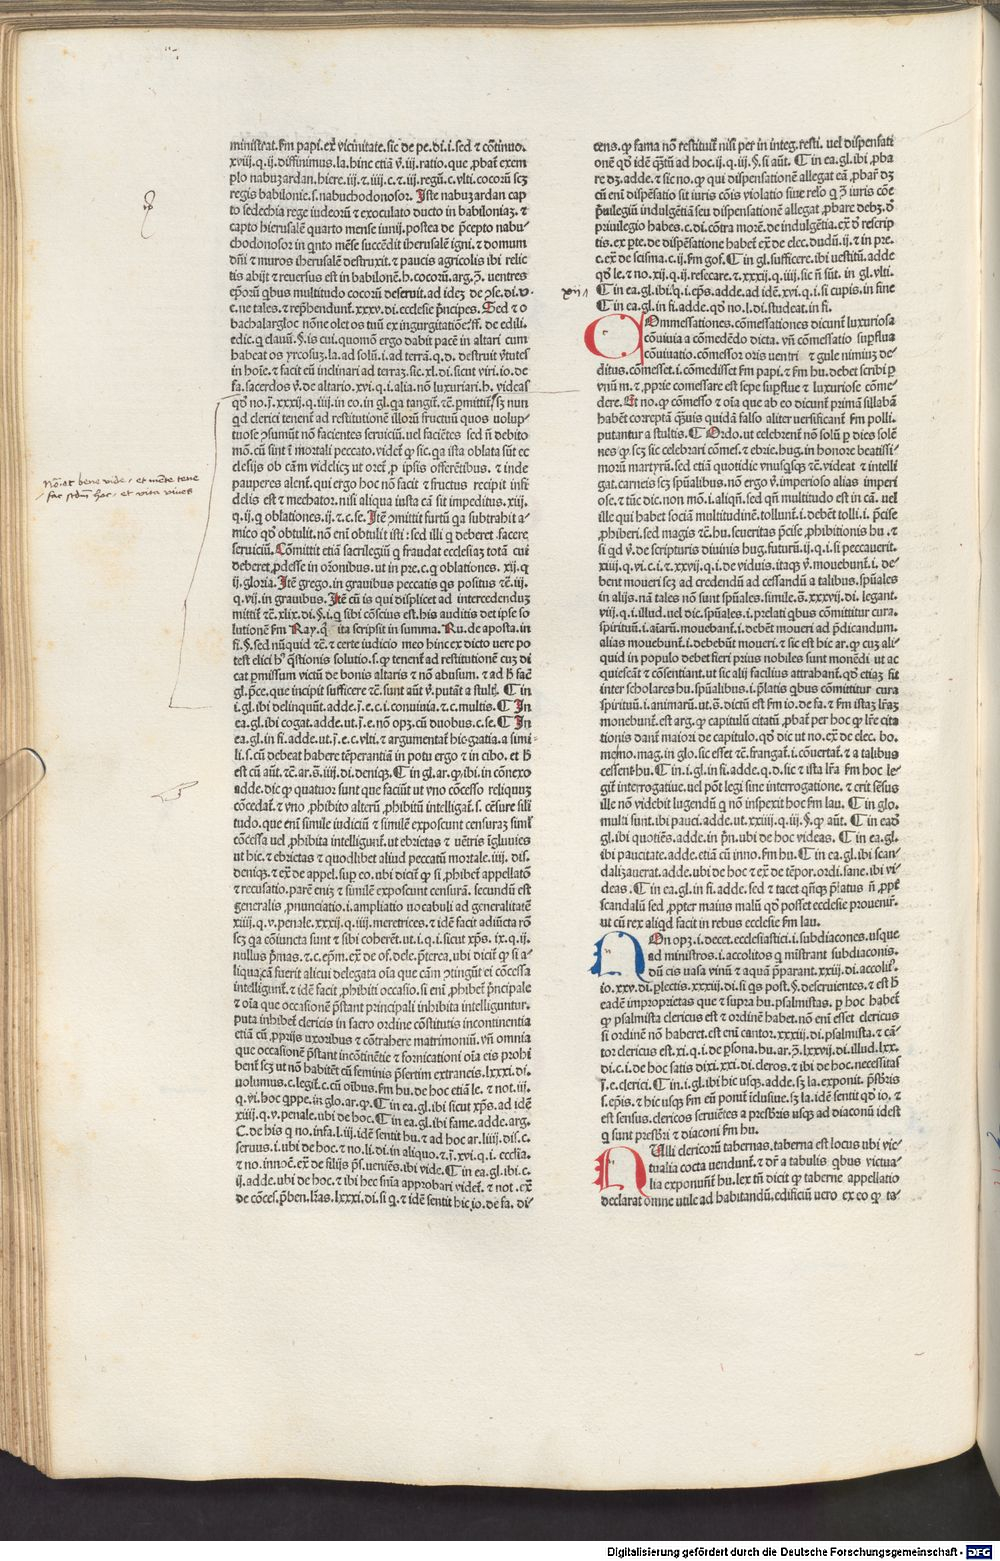 ministrat. fm papi. ex̄ vicinitate. sic de pe. di. i. sed ⁊ cōtinuo.
xviij. q. ij. diffinimus. la. hinc etiā v̄. iij. ratio. que ꝓbat̄ exem
plo nabuzardan. hiere. iij. ⁊ iiij. c. ⁊ iij. regū. c. vlti. cocorū scꝫ
regis babilonie. s. nabuchodonosor. Iste nabuzardan cap
to sedechia rege iudeorū ⁊ exoculato ducto in babiloniaꝫ. ⁊
capto hierusalē quarto mense iunij. postea de p̄cepto nabu
chodonosor in qnto mēse succēdit iherusalē igni. ⁊ domum
dn̄i ⁊ muros iherusalē destruxit. ⁊ paucis agricolis ibi relic
tis abijt ⁊ reuersus est in babilonē. h. cocorū. arg. ꝯ. uentres
ep̄orū qbus multitudo cocorū deseruit. ad ideꝫ de ꝯse. di. v.
c. ne tales. ⁊ rep̄hendunt̄. xxxv. di. ecclesie p̄ncipes. Sed ⁊ o
bachalargloc nōne olet os tuū ex ingurgitatiōe. ff. de edili.
edic. q clauū. §. is cui. quomō ergo dabit pacē in altari cum
habeat os yrcosuꝫ. la. ad solū. i. ad terrā. q. d. destruit v̄tutes
in hoīe. ⁊ facit eū inclinari ad terraꝫ. sic. xl. di. sicut viri. io. de
fa. sacerdos v̄. de altario. xvi. q. i. alia. nō luxuriari. h. videas
qd̄ no. j̄. xxxij. q. iij. in eo. in gl. qa tangit̄. ⁊c̄. p̄mittiť. sꝫ nun
qd clerici tenent̄ ad restitutionē illorū fructuū quos uolup
tuose ꝯsumūt nō facientes seruiciū. uel faciētes sed n̄ debito
mō. cū sunt ī mortali peccato. videt̄ ꝙ sic. qa ista oblata sūt ec
clesijs ob cām videlicꝫ ut oret̄ ꝓ ipsis offerētibus. ⁊ inde
pauperes alent̄. qui ergo hoc nō facit ⁊ fructus recipit infi
delis est ⁊ mechator. nisi aliqua iusta cā sit impeditus. xiij.
q. ij. q oblationes. ij. ⁊ c. se. Itē ꝯmittit furtū qa subtrahit a
mico qd̄ obtulit. nō em̄ obtulit isti: sed illi q deberet facere
seruiciū. Cōmittit etiā sacrilegiū q fraudat ecclesiaꝫ totā cui
deberet ꝓdesse in or̄onibus. ut in pre. c. q oblationes. xij. q
ij. gloria. Itē grego. in grauibus peccatis qs positus ⁊c̄. iij.
q. vij. in grauibus. Itē cū is qui displicet ad intercedenduꝫ
mittit̄ ⁊c̄. xlix. di. §. i. q sibi cōscius est. his auditis det ipse so
lutionē fm Ray. q̄ ita scripsit in summa. Ru. de aposta. in
fi. §. sed nūquid ⁊c̄. ⁊ certe iudicio meo hinc ex dicto vero po
test elici hꝰ q̄stionis solutio. s. ꝙ tenent̄ ad restitutionē cuꝫ di
cat p̄missum victū de bonis altaris ⁊ nō abusum. ⁊ ad h̄ facē
gl. p̄ce. que incipit sufficere ⁊c̄. sunt aūt v̄. putāt a stultꝭ. ¶ in
i. gl. ibi delinquūt. adde. j̄. e. c. i. conuiuia. ⁊ c. multis. ¶ In
ea. gl. ibi cogat. adde. ut. j̄. e. nō opꝫ. cū duobus. c. se. ¶ In
ea. gl. in fi. adde. ut. j̄. e. c. vlti. ⁊ argumentat̄ hic gratia. a simi
li. s. cū debeat habere tēperantiā in potu ergo ⁊ in cibo. et h̄
est cū aūt. ⁊c̄. ar. ꝯ. iiij. di. deniqꝫ. ¶ in gl. ar. ꝙ ibi. in cōnexo
adde. dic ꝙ quatuor sunt que faciūt ut vno cōcesso reliquuꝫ
cōcedat̄. ⁊ vno ꝓhibito alterū ꝓhibitū intelligat̄. s. cēsure sili
tudo. que em̄ simile iudiciū ⁊ similē exposcunt censuraꝫ siml̄
cōcessa uel ꝓhibita intelligunt̄. ut ebrietas ⁊ uētris īgluuies
ut hic. ⁊ ebrietas ⁊ quodlibet aliud peccatū mortale. iiij. dis.
deniqꝫ. ⁊ ex̄ de appel. sup eo. ubi dicit̄ ꝙ si ꝓhibet̄ appellatō
⁊ recusatio. parē eniꝫ ⁊ similē exposcunt censurā. secundū est
generalis ꝓnunciatio. i. ampliatio uocabuli ad generalitatē
xiiij. q. v. penale. xxxij. q. iiij. meretrices. ⁊ idē facit adiūcta rō
scꝫ qa cōiuncta sunt ⁊ sibi coherēt. ut. i. q. i. sicut xp̄s. ix. q. ij.
nullus p̄mas. ⁊ c. ep̄m. ex̄ de of. dele. p̄terea. ubi dicit̄ ꝙ si a
liqua cā fuerit alicui delegata oīa que cām ꝯtingūt ei cōcessa
intelligunt̄. ⁊ idē facit ꝓhibiti occasio. si em̄ ꝓhibet̄ p̄ncipale
⁊ oīa que occasionē p̄stant principali inhibita intelliguntur.
puta inhibet̄ clericis in sacro ordine cōstitutis incontinentia
etiā cū ꝓprijs uxoribus ⁊ cōtrahere matrimoniū. vn̄ omnia
que occasionē p̄stant incōtinētie ⁊ fornicationi oīa eis prohi
bent̄ scꝫ ut nō habitēt cū feminis p̄sertim extraneis. lxxxi. di.
uolumus. c. legit̄. c. cū oībus. fm hu. de hoc etiā le. ⁊ not. iij.
q. vi. hoc qppe. in glo. ar. ꝙ. ¶ in ea. gl. ibi sicut xp̄s. ad idē
xiiij. q. v. penale. ubi de hoc. ¶ in ea. gl. ibi fame. adde. arg.
C. de his q no. infa. l. iij. idē sentit hu. ⁊ ad hoc ar. liiij. dis. c.
seruus. i. ubi de hoc. ⁊ no. li. di. in aliquo. ⁊ j̄. xvi. q. i. ecclīa.
⁊ no. innoc̄. ex̄ de filijs p̄s. ueniēs. ibi vide. ¶ in ea. gl. ibi. c.
ij. adde. ubi de hoc. ⁊ ibi hec sn̄ia approbari videt̄. ⁊ not. ex̄
de cōces. p̄ben. lr̄as. lxxxi. di. si q. ⁊ idē sentit hic io. de fa. di
cens. ꝙ fama nō restituit̄ nisi per in integ. resti. uel dispensati
onē qd̄ idē q̄ꝫtū ad hoc. ij. q. iij. §. si aūt. ¶ in ea. gl. ibi ꝓba
re dꝫ. adde. ⁊ sic no. ꝙ qui dispensationē allegat eā ꝓbar̄ dꝫ
cū em̄ dispēsatio sit iuris cōis violatio siue relō q ꝯ iuris cōe
p̄uilegiū indulgētiā seu dispensationē allegat ꝓbare debꝫ. d̄
priuilegio habes. c. di. cōtra morē. de indulgētia. ex̄ d̄ rescrip
tis. ex p̄te. de dispēsatione habet̄ ex̄ de elec. dudū. ij. ⁊ in pre.
c. ex̄ de scisma. c. ij. fm gof. ¶ in gl. sufficere. ibi uestitū. adde
qd̄ le. ⁊ no. xij. q. ij. resecare. ⁊. xxxij. q. iiij. sic n̄ sūt. in gl. vlti.
¶ in ea. gl. ibi. q. i. ep̄s. adde. ad idē. xvi. q. i. si cupis. in fine
¶ in ea. gl. in fi. adde. qd̄ no. l. di. studeat. in fi.
COmmessationes. cōmessationes dicunt̄ luxuriosa
cōuiuia a cōmedēdo dicta. vn̄ cōmessatio suꝑflua
cōuiuatio. cōmessor oris uentri ⁊ gule nimiuꝫ de
ditus. cōmesset. i. comedisset fm papi. ⁊ fm hu. debet scribi ꝑ
vnū m. ⁊ ꝓprie comessare est sepe suꝑflue ⁊ luxuriose cōme
dere. Et no. ꝙ cōmesso ⁊ oīa que ab eo dicunt̄ primā sillabā
habēt correptā q̄uis quidā falso aliter uersificant̄ fm polli.
putantur a stultis. ¶ Ordo. ut celebrent̄ nō solū ꝑ dies solē
nes ꝙ scꝫ sic celebrari cōmes. ⁊ ebrie. hug. in honore beatissi
morū martyrū. sed etiā quotidie vnusqsqꝫ ⁊c̄. videat ⁊ intelli
gat. carneis scꝫ sp̄ualibus. nō ergo v̄. imperioso alias imperi
ose. ⁊ tūc dic. non mō. i. aliqn̄. sed qn̄ multitudo est in cā. uel
ille qui habet sociā multitudinē. tollunt̄. i. debēt tolli. i. p̄cise
ꝓhiberi. sed magis ⁊c̄. hu. seueritas p̄cise ꝓhibitionis hu. ⁊
si qd v̄. de scripturis diuinis hug. futurū. ij. q. i. si peccauerit.
xiiij. q. vi. c. i. ⁊. xxvij. q. i. de viduis. itaqꝫ v̄. mouebunt̄. i. de
bent moueri scꝫ ad credendū ad cessandū a talibus. sp̄uales
in alijs. nā tales nō sunt sp̄uales. simile. s̄. xxxvij. di. legant̄.
viij. q. i. illud. uel dic. sp̄uales. i. prelati qbus cōmittitur cura
spirituū. i. aīarū. mouebant̄. i. debēt moueri ad p̄dicandum.
alias mouebunt̄. i. debebūt moueri. ⁊ sic est hic ar. ꝙ cuꝫ ali
quid in populo debet fieri prius nobiles sunt monēdi ut ac
quiescāt ⁊ cōsentiant. ut sic alij facilius attrahant̄. qd̄ etiaꝫ fit
inter scholares hu. sp̄ualibus. i. p̄latis qbus cōmittitur cura
spirituū. i. animarū. ut. s̄. dictū est fm io. de fa. ⁊ fm istaꝫ lr̄aꝫ
monebunt̄. est arg. ꝙ capitulū citatū ꝓbat̄ per hoc ꝙ lr̄e cita
tionis dant̄ maiori de capitulo. qd̄ dic ut no. ex̄ de elec. bo.
memo. mag. in glo. sic esset ⁊c̄. frangat̄. i. cōuertat̄. ⁊ a talibus
cessent hu. ¶ in. i. gl. in fi. adde. q. d. sic ⁊ ista lr̄a fm hoc le
git̄ interrogatiue. uel pōt legi sine interrogatione. ⁊ erit sēsus
ille nō videbit lugendū q nō inspexit hoc fm lau. ¶ in glo.
multi sunt. ibi pauci. adde. ut. xxiiij. q. iij. §. ꝙ aūt. ¶ in ead̄
gl. ibi quotiēs. adde. in p̄n. ubi de hoc videas. ¶ in ea. gl.
ibi paucitate. adde. etiā cū inno. fm hu. ¶ in ea. gl. ibi scan
dalizauerat. adde. ubi de hoc ⁊ ex̄ de tēpor. ordi. sane. ibi vi
deas. ¶ in ea. gl. in fi. adde. sed ⁊ tacet qn̄qꝫ p̄latus n̄ ꝓpt̄
scandalū sed ꝓpter maius malū qd̄ posset ecclesie prouenir̄.
ut cū rex aliqd facit in rebus ecclesie fm lau.
NOn opꝫ. i. decet. ecclesiastici. i. subdiacones. usque
ad ministros. i. accolitos q mīstrant subdiaconis.
dū eis uasa vinū ⁊ aquā p̄parant. xxiij. di. accolit̄.
io. xxv. di. ꝑlectis. xxxiij. di. si qs post. §. deseruientes. ⁊ est h̄
eadē improprietas que ⁊ supra hu. psalmistas. ꝑ hoc habet̄
ꝙ psalmista clericus est ⁊ ordinē habet. nō em̄ esset clericus
si ordinē nō haberet. est em̄ cantor. xxxiij. di. psalmista. ⁊ cā
tor clericus est. xi. q. i. de ꝑsona. hu. ar. ꝯ. lxxvij. di. illud. lxx.
di. c. i. de hoc satis dixi. xxi. di. cleros. ⁊ ibi de hoc. necessitas
j̄. e. clerici. ¶ in. i. gl. ibi hic usqꝫ. adde. sꝫ la. exponit. p̄sbr̄is
s. ep̄is. ⁊ hic usqꝫ fm eū ponit̄ īclusiue. sꝫ la. idē sentit qd̄ io. ⁊
est sensus. clericos seruiētes a presbr̄is usqꝫ ad diaconū idest
q sunt presbr̄i ⁊ diaconi fm hu.
NUlli clericorū tabernas. taberna est locus ubi vic
tualia cocta uendunt̄. ⁊ dr̄ a tabulis qbus victua
lia exponunt̄ hu. lex tn̄ dicit ꝙ taberne appellatio
declarat omne utile ad habitandū. edificiū uero ex eo ꝙ ta
xii
Digitalisierung gefördert durch die Deutsche Forschungsgemeinschaft - DFG